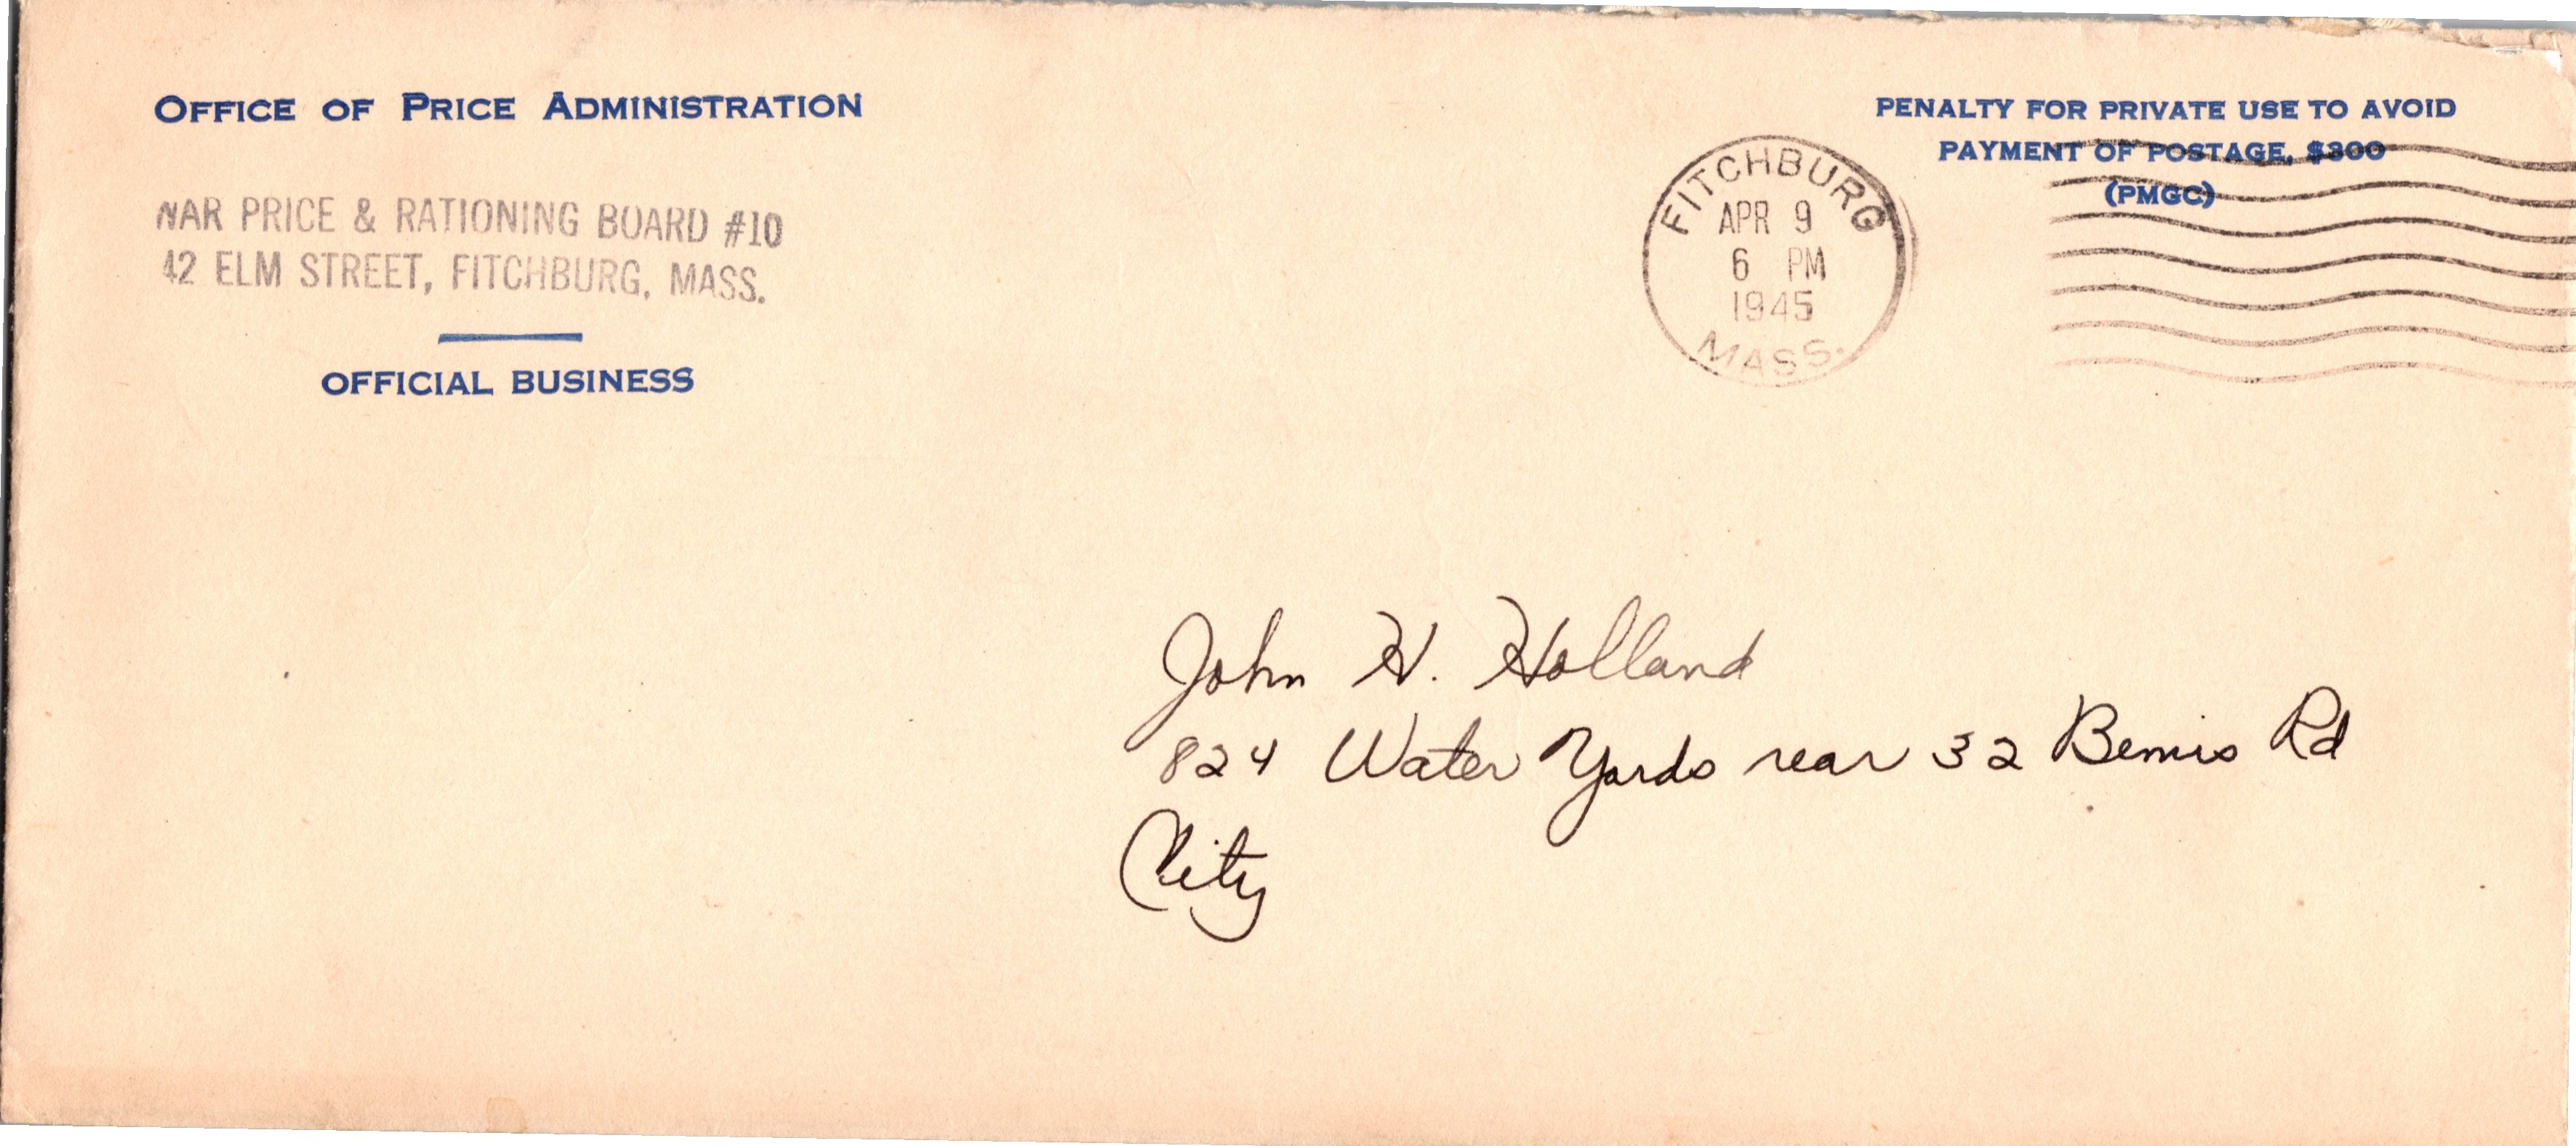 OFFICE OF PRICE ADMINISTRATION
WAR PRICE & RATIONING BOARD #10
42 ELM STREET, FITCHBURG, MASS.
OFFICIAL BUSINESS
PENALTY FOR PRIVATE USE TO AVOID
PAYMENT OF POSTAGE, $300
(PMGC)
FITCHBURG
APR 9
6 PM
1945
MASS.
John H. Holland
824 Water Yards rear 32 Bemis Rd
City